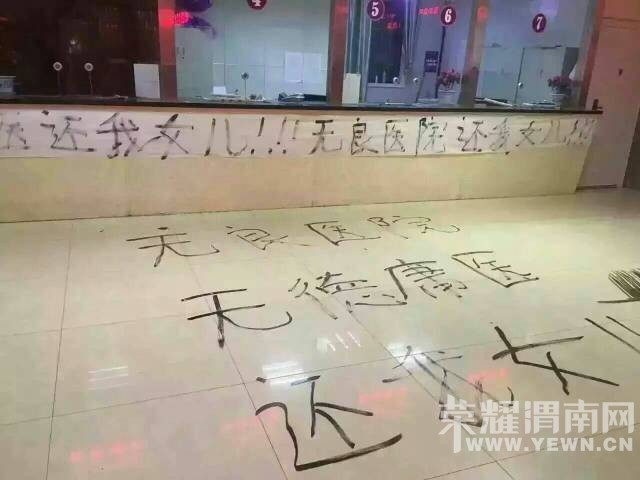 4
5
6
7
医还我女儿!!!无良医院还我女儿!!!
无良医院
无德庸医
还我女儿
荣耀渭南网
WWW.YEWN.CN